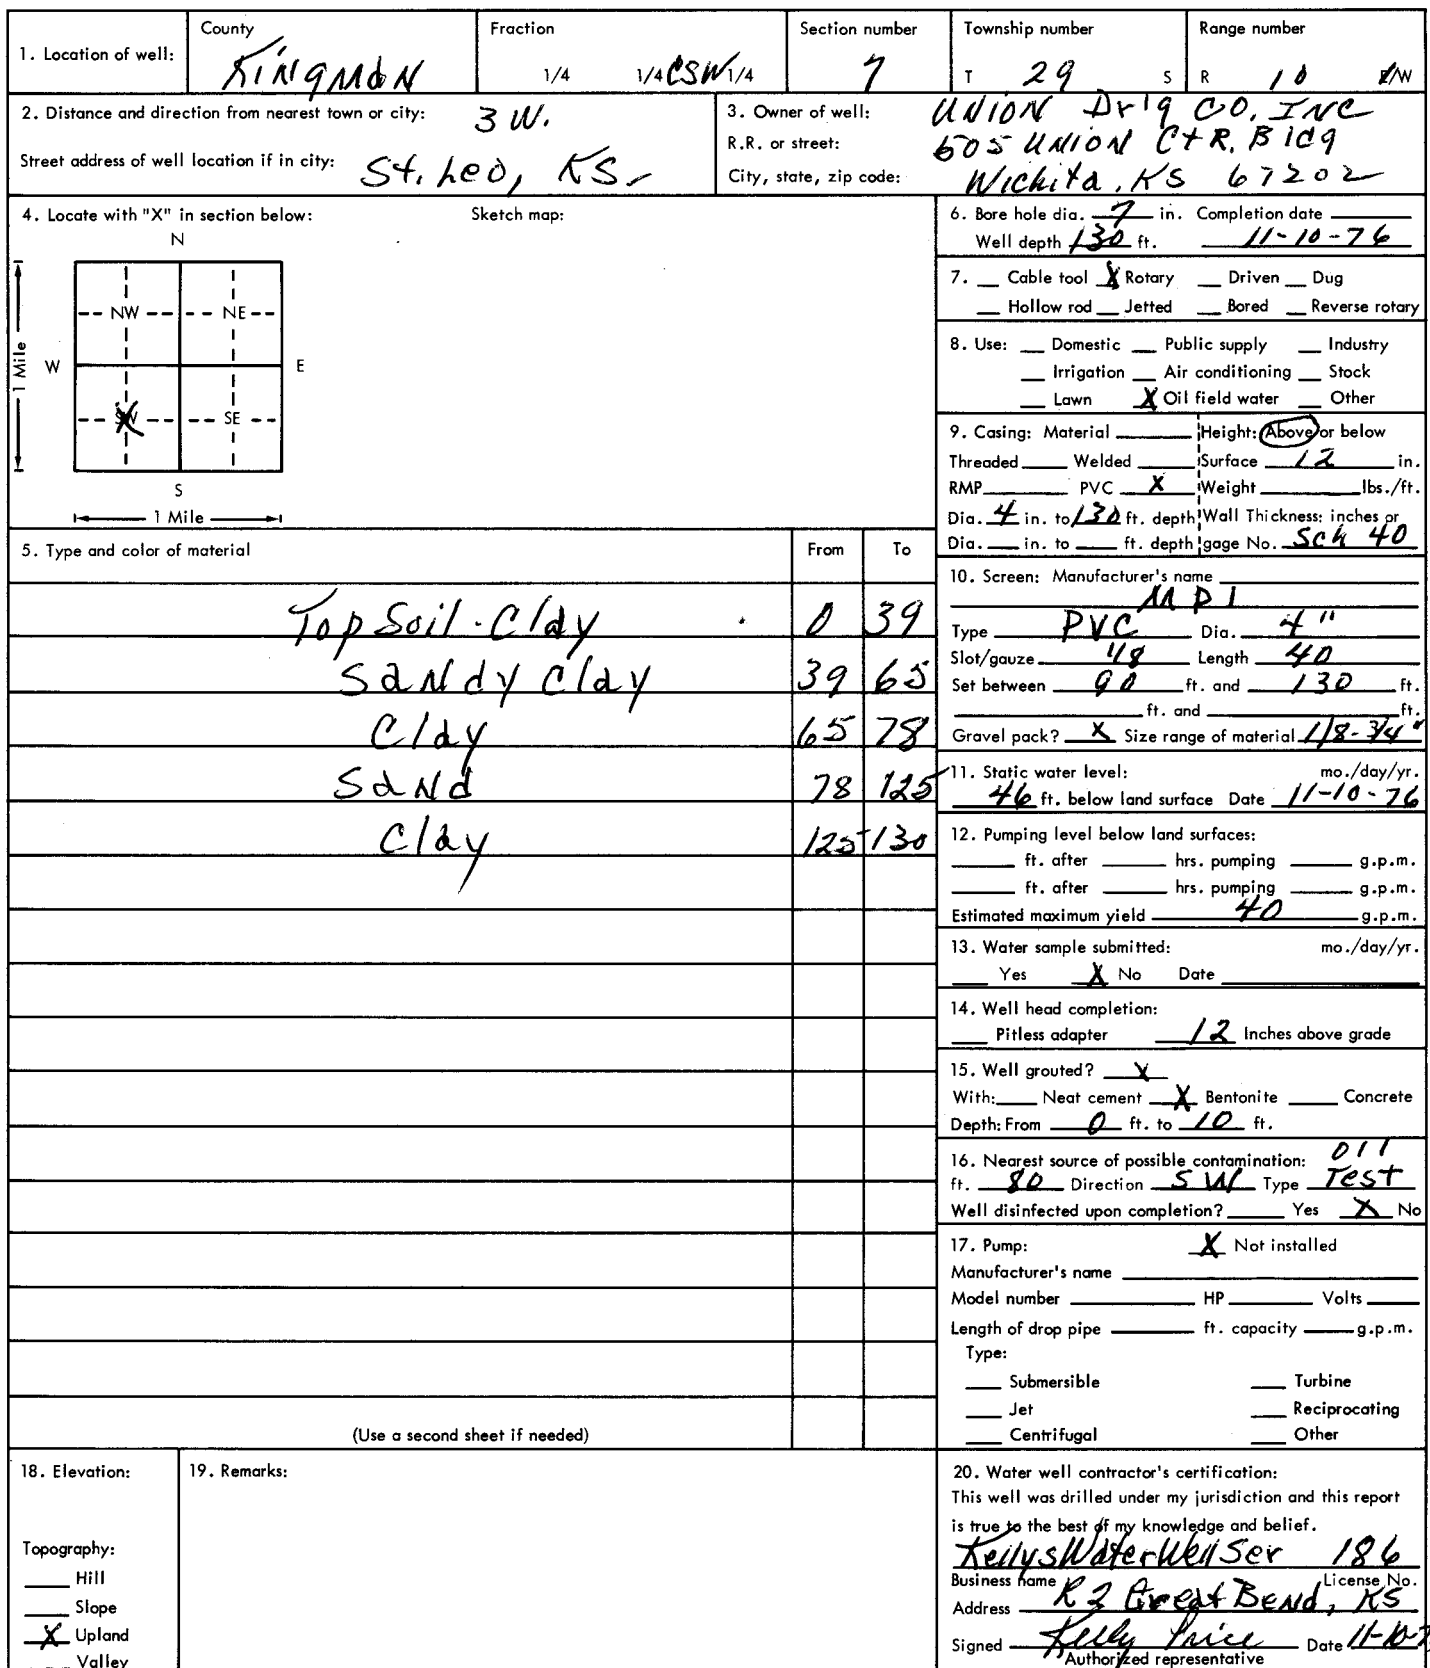 1. Location of well:
County
Kingman
Fraction
1/4 1/4 CSW 1/4
Section number
7
Township number
T 29 S
Range number
R 10 E/W
2. Distance and direction from nearest town or city: 3 W.
Street address of well location if in city: St. Leo, KS.
3. Owner of well: UNION Drlg CO. INC
R.R. or street: 605 UNION CtR. Bldg
City, state, zip code: Wichita, KS 67202
4. Locate with "X" in section below:
Sketch map:
N
NW NE
W E
SW SE
S
1 Mile
1 Mile
5. Type and color of material From To
Top Soil - Clay 0 39
Sandy Clay 39 65
Clay 65 78
Sand 78 125
Clay 125 130
(Use a second sheet if needed)
6. Bore hole dia. 7 in. Completion date
Well depth 130 ft. 11-10-76
7. Cable tool X Rotary Driven Dug
Hollow rod Jetted Bored Reverse rotary
8. Use: Domestic Public supply Industry
Irrigation Air conditioning Stock
Lawn X Oil field water Other
9. Casing: Material Height: Above or below
Threaded Welded Surface 12 in.
RMP PVC X Weight lbs./ft.
Dia. 4 in. to 130 ft. depth Wall Thickness: inches or
Dia. in. to ft. depth gage No. Sch 40
10. Screen: Manufacturer's name
MPI
Type PVC Dia. 4"
Slot/gauze 1/8 Length 40
Set between 90 ft. and 130 ft.
ft. and ft.
Gravel pack? X Size range of material 1/8-3/4"
11. Static water level: mo./day/yr.
46 ft. below land surface Date 11-10-76
12. Pumping level below land surfaces:
ft. after hrs. pumping g.p.m.
ft. after hrs. pumping g.p.m.
Estimated maximum yield 40 g.p.m.
13. Water sample submitted: mo./day/yr.
Yes X No Date
14. Well head completion:
Pitless adapter 12 Inches above grade
15. Well grouted? X
With: Neat cement X Bentonite Concrete
Depth: From 0 ft. to 10 ft.
16. Nearest source of possible contamination: Oil
ft. 80 Direction SW Type Test
Well disinfected upon completion? Yes X No
17. Pump: X Not installed
Manufacturer's name
Model number HP Volts
Length of drop pipe ft. capacity g.p.m.
Type:
Submersible Turbine
Jet Reciprocating
Centrifugal Other
18. Elevation:
Topography:
Hill
Slope
X Upland
Valley
19. Remarks:
20. Water well contractor's certification:
This well was drilled under my jurisdiction and this report
is true to the best of my knowledge and belief.
Kellys Water Well Ser 186
Business name License No.
Address R 2 Great Bend, KS
Signed Kelly Price Date 11-10-7
Authorized representative